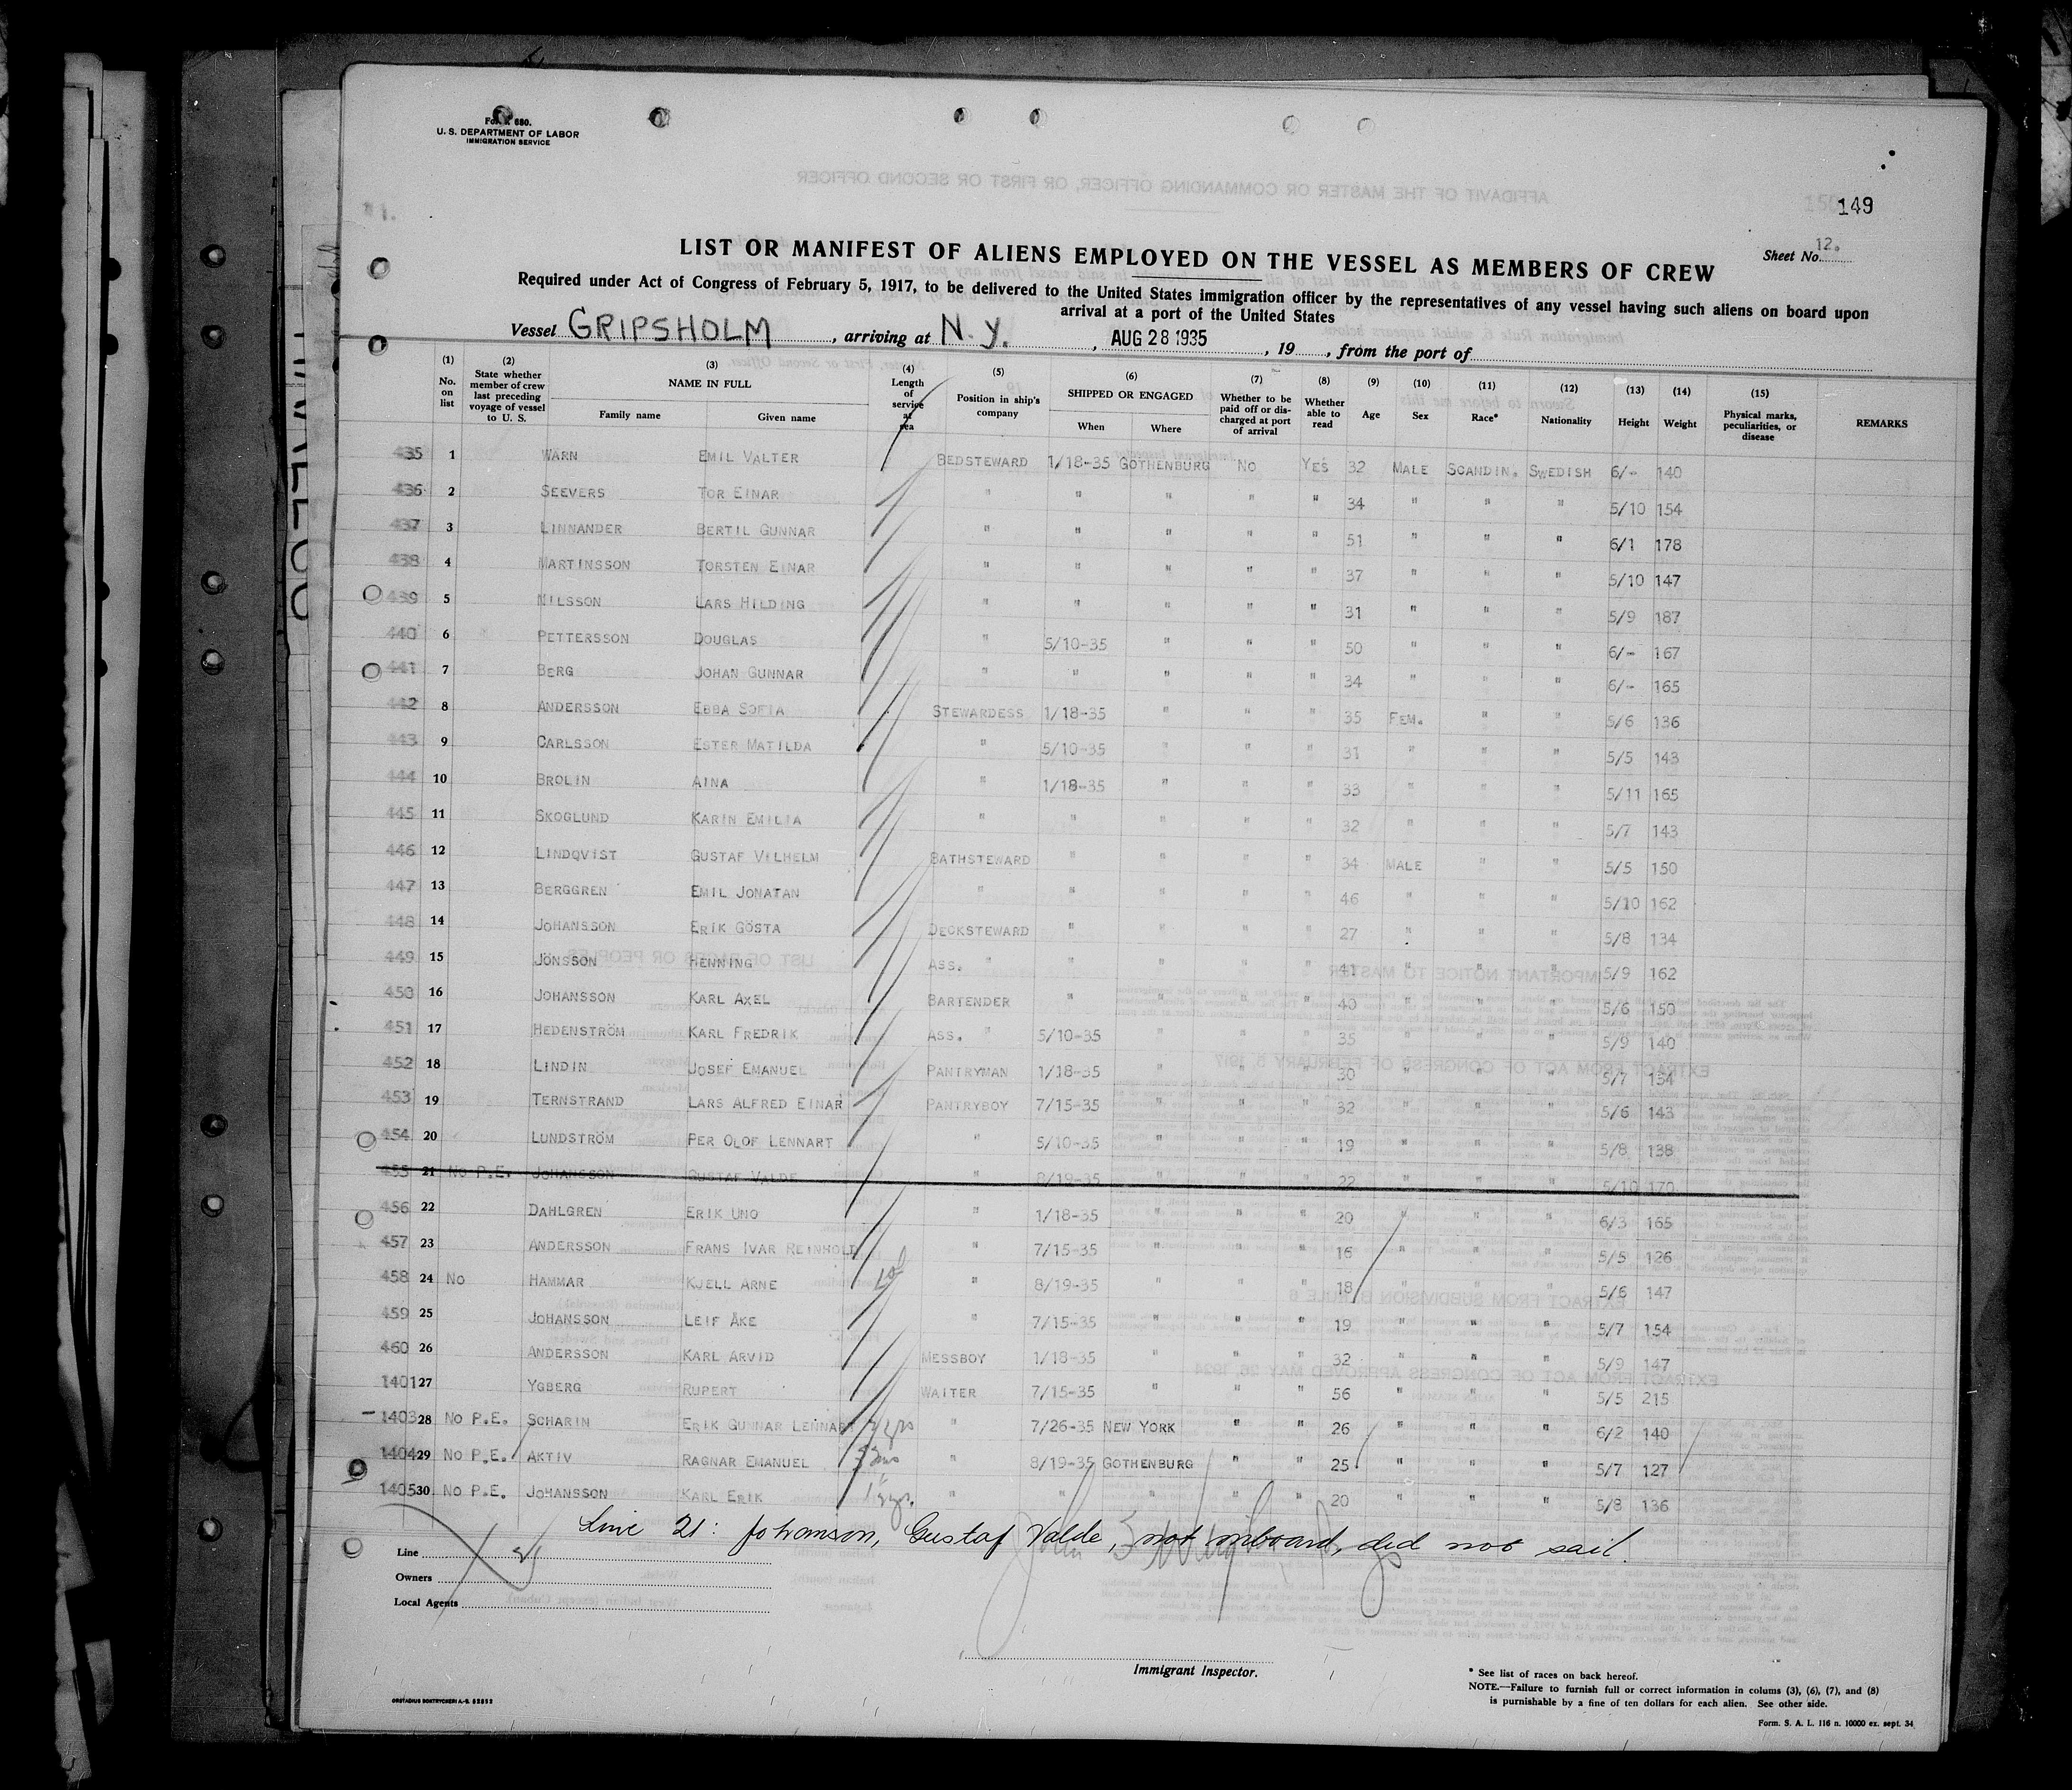 Form 680.
U. S. DEPARTMENT OF LABOR
IMMIGRATION SERVICE
149
Sheet No. 12.
LIST OR MANIFEST OF ALIENS EMPLOYED ON THE VESSEL AS MEMBERS OF CREW
Required under Act of Congress of February 5, 1917, to be delivered to the United States immigration officer by the representatives of any vessel having such aliens on board upon
arrival at a port of the United States
Vessel GRIPSHOLM, arriving at N.Y., AUG 28 1935, 19, from the port of
(1) No. on list (2) State whether member of crew last preceding voyage of vessel to U. S. (3) NAME IN FULL Family name Given name (4) Length of service at sea (5) Position in ship's company (6) SHIPPED OR ENGAGED When Where (7) Whether to be paid off or discharged at port of arrival (8) Whether able to read (9) Age (10) Sex (11) Race* (12) Nationality (13) Height (14) Weight (15) Physical marks, peculiarities, or disease REMARKS
435 1 WARN EMIL VALTER BEDSTEWARD 1/18-35 GOTHENBURG NO YES 32 MALE SCANDIN. SWEDISH 6/- 140
436 2 SEEVERS TOR EINAR " " " " " 34 " " " 5/10 154
437 3 LINNANDER BERTIL GUNNAR " " " " " 51 " " " 6/1 178
438 4 MARTINSSON TORSTEN EINAR " " " " " 37 " " " 5/10 147
439 5 NILSSON LARS HILDING " " " " " 31 " " " 5/9 187
440 6 PETTERSSON DOUGLAS " 5/10-35 " " " 50 " " " 6/- 167
441 7 BERG JOHAN GUNNAR " " " " " 34 " " " 6/- 165
442 8 ANDERSSON EBBA SOFIA STEWARDESS 1/18-35 " " " 35 FEM. " " 5/6 136
443 9 CARLSSON ESTER MATILDA " 5/10-35 " " " 31 " " " 5/5 143
444 10 BROLIN AINA " 1/18-35 " " " 33 " " " 5/11 165
445 11 SKOGLUND KARIN EMILIA " " " " " 32 " " " 5/7 143
446 12 LINDQVIST GUSTAF VILHELM BATHSTEWARD " " " " 34 MALE " " 5/5 150
447 13 BERGGREN EMIL JONATAN " " " " " 46 " " " 5/10 162
448 14 JOHANSSON ERIK GÖSTA DECKSTEWARD " " " " 27 " " " 5/8 134
449 15 JÖNSSON HENNING ASS. " " " " " 41 " " " 5/9 162
450 16 JOHANSSON KARL AXEL BARTENDER " " " " 40 " " " 5/6 150
451 17 HEDENSTRÖM KARL FREDRIK ASS. " 5/10-35 " " " 35 " " " 5/9 140
452 18 LINDIN JOSEF EMANUEL PANTRYMAN 1/18-35 " " " 30 " " " 5/7 154
453 19 TERNSTRAND LARS ALFRED EINAR PANTRYBOY 7/15-35 " " " 32 " " " 5/6 143
454 20 LUNDSTRÖM PER OLOF LENNART " 5/10-35 " " " 19 " " " 5/8 138
455 21 NO P.E. JOHANSSON GUSTAF VALDE " 8/19-35 " " " 22 " " " 5/10 170
456 22 DAHLGREN ERIK UNO " 1/18-35 " " " 20 " " " 6/3 165
457 23 ANDERSSON FRANS IVAR REINHOLD " 7/15-35 " " " 16 " " " 5/5 126
458 24 NO HAMMAR KJELL ARNE 1st " 8/19-35 " " " 18 " " " 5/6 147
459 25 JOHANSSON LEIF ÅKE " 7/15-35 " " " 19 " " " 5/7 154
460 26 ANDERSSON KARL ARVID MESSBOY 1/18-35 " " " 32 " " " 5/9 147
1401 27 YGBERG RUPERT WAITER 7/15-35 " " " 56 " " " 5/5 215
1403 28 NO P.E. SCHARIN ERIK GUNNAR LENNART yrs " 7/26-35 NEW YORK " " 26 " " " 6/2 140
1404 29 NO P.E. AKTIV RAGNAR EMANUEL " 8/19-35 GOTHENBURG " " 25 " " " 5/7 127
1405 30 NO P.E. JOHANSSON KARL ERIK " " " " " 20 " " " 5/8 136
Line 21: Johanson, Gustaf Valde, not onboard, did not sail.
Line
Owners
Local Agents
Immigrant Inspector.
* See list of races on back hereof.
NOTE.—Failure to furnish full or correct information in colums (3), (6), (7), and (8)
is punishable by a fine of ten dollars for each alien. See other side.
Form. S. A. L. 116 n. 10000 ex. sept. 34